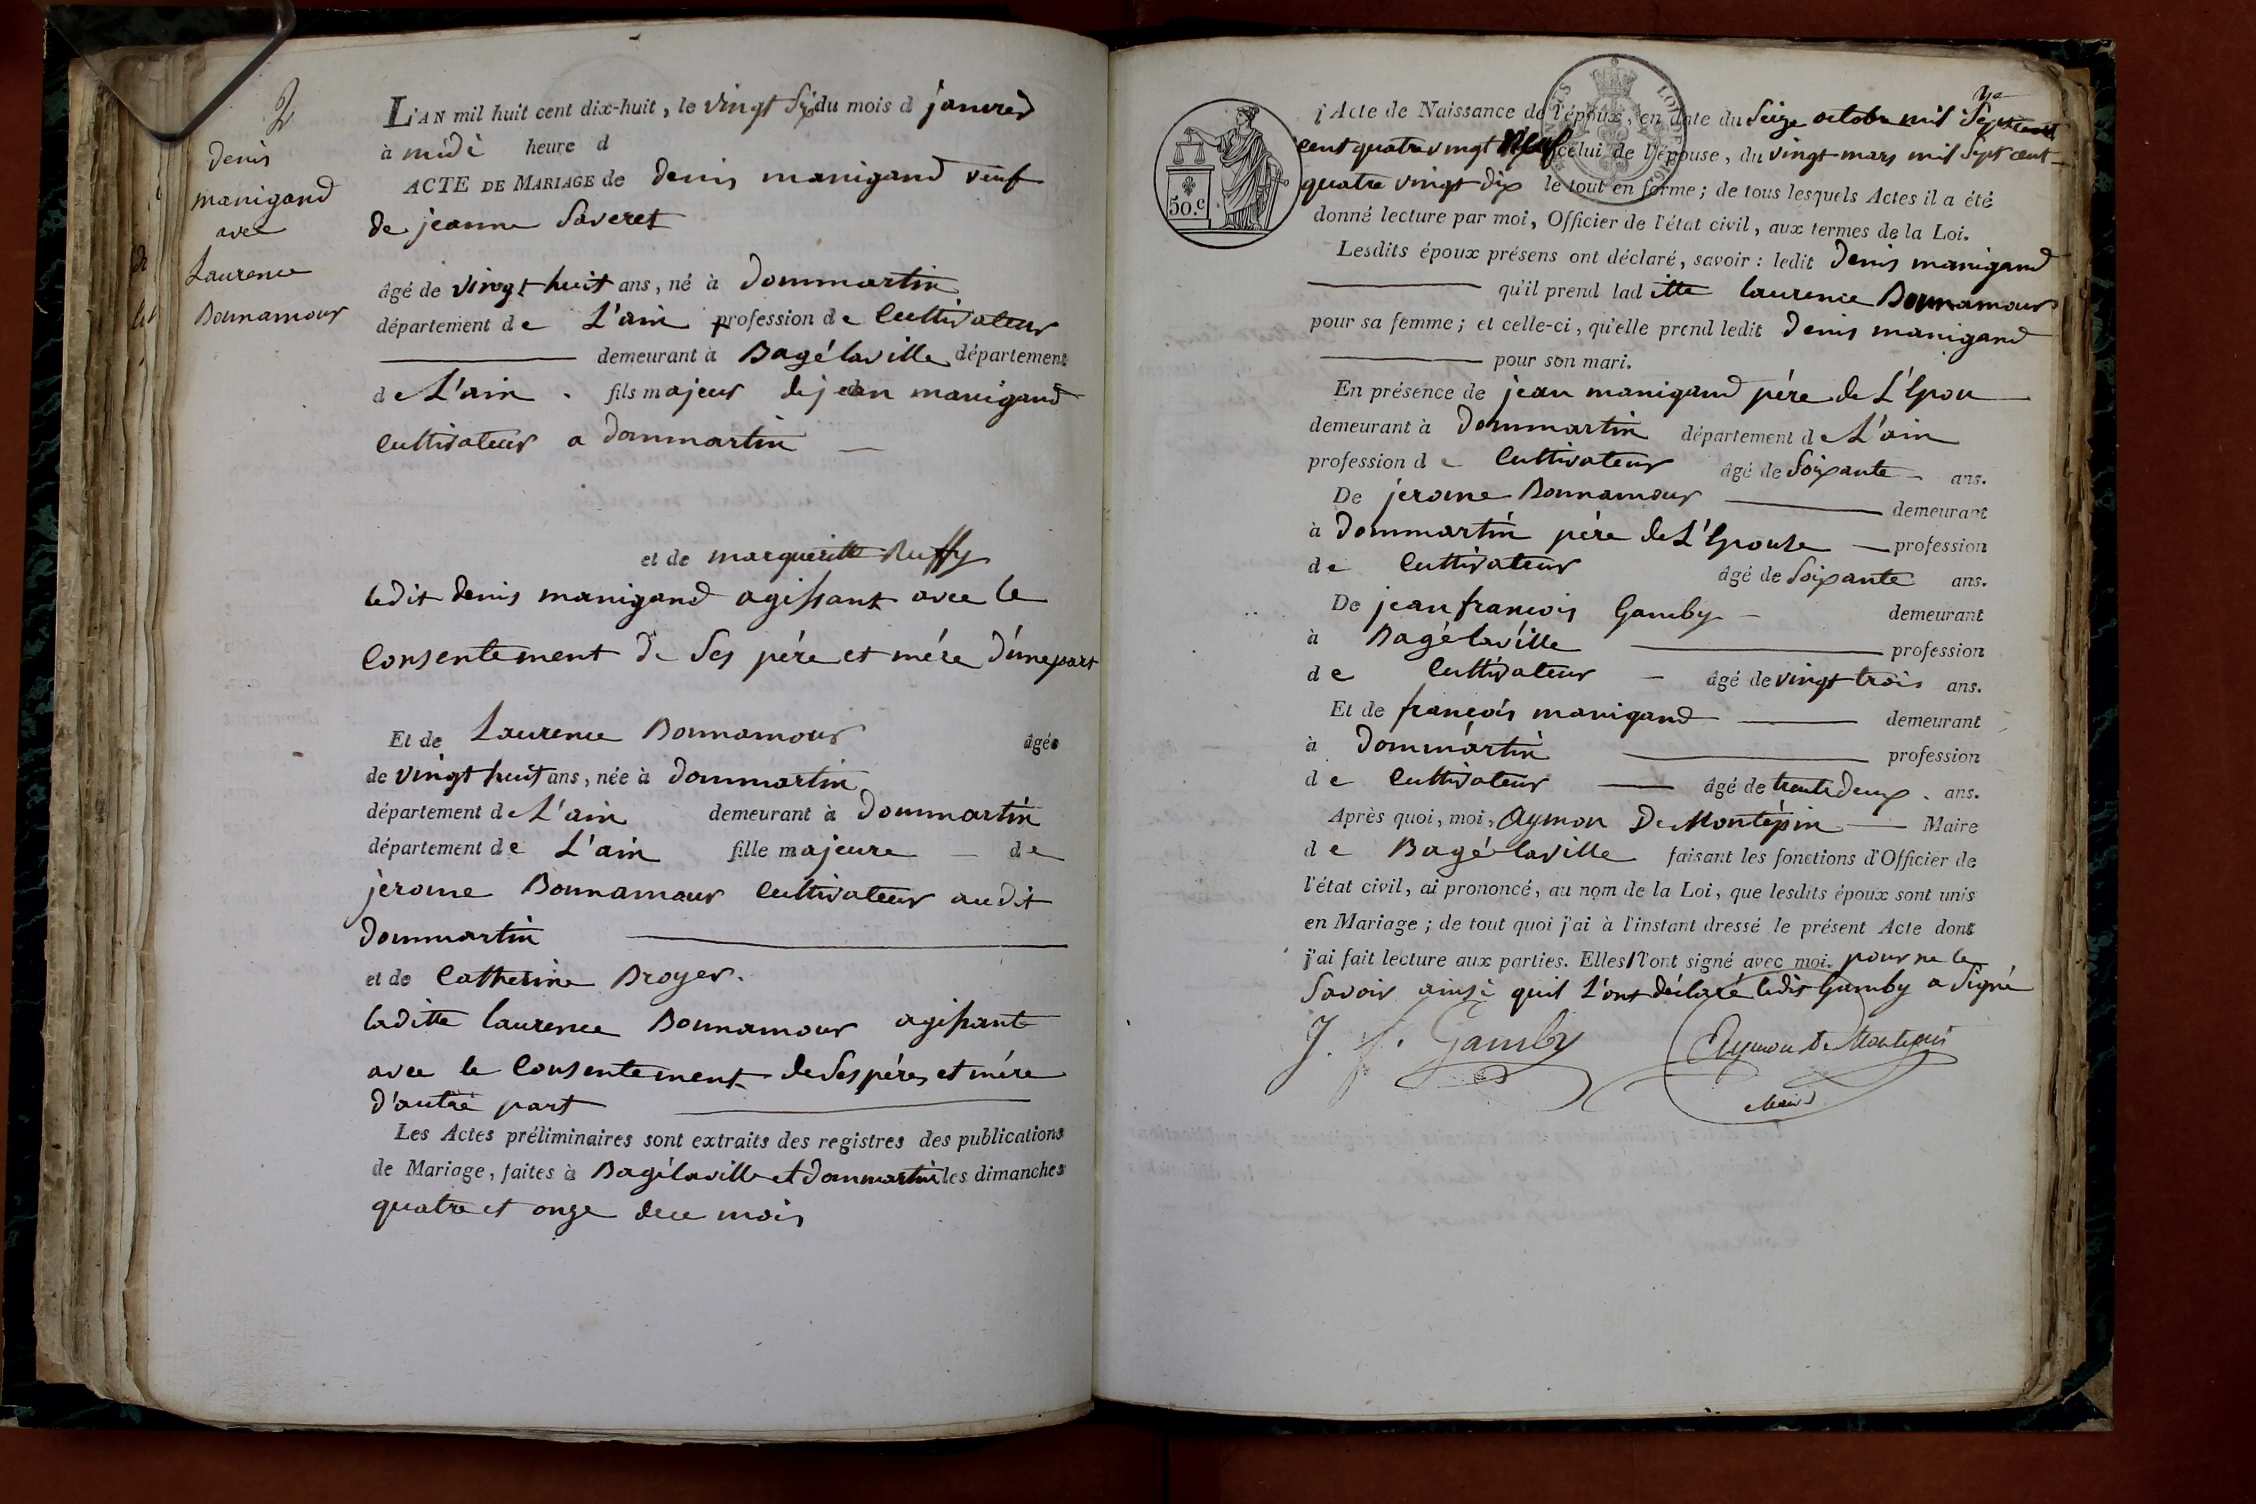 2
denis
manigand
avec
Laurence
Bonnamour
L'AN mil huit cent dix-huit, le vingt six du mois d janvier
à midi heure d
ACTE DE MARIAGE de denis manigand veuf
de jeanne Saveret
âgé de vingt huit ans, né à dommartin
département de L'ain profession de Cultivateur
demeurant à Bagélaville département
de L'ain . fils majeur de jean manigand
Cultivateur a dommartin
et de margueritte Ruffy
ledit denis manigand agissant avec le
Consentement de ses pére et mére d'une part
Et de Laurence Bonnamour âgée
de vingt huit ans, née à dommartin
département de L'ain demeurant à dommartin
département de L'ain fille majeure de
jerome Bonnamour Cultivateur audit
dommartin
et de Catherine Broyer.
laditte laurence Bonnamour agissante
avec le Consentement de Ses péres et mére
d'autre part
Les Actes préliminaires sont extraits des registres des publications
de Mariage, faites à Bagélaville et dommartin les dimanches
quatre et onze de ce mois
50.c
l'Acte de Naissance de l'époux, en date du Seize octobre mil Sept
cent quatre vingt neuf celui de l'épouse, du vingt mars mil Sept cent
quatre vingt dix le tout en forme; de tous lesquels Actes il a été
donné lecture par moi, Officier de l'état civil, aux termes de la Loi.
Lesdits époux présens ont déclaré, savoir: ledit denis manigand
qu'il prend laditte laurence Bonnamour
pour sa femme; et celle-ci, qu'elle prend ledit denis manigand
pour son mari.
En présence de jean manigand pére de L'Epou
demeurant à Dommartin département de L'ain
profession de Cultivateur âgé de Soixante ans.
De jerome Bonnamour demeurant
à Dommartin pére de L'Epouse profession
de Cultivateur âgé de Soixante ans.
De jean françois Gamby demeurant
à Bagélaville profession
de Cultivateur âgé de vingt trois ans.
Et de françois manigand demeurant
à Dommartin profession
de Cultivateur âgé de trente deux ans.
Après quoi, moi, Aymon De Montépin Maire
de Bagélaville faisant les fonctions d'Officier de
l'état civil, ai prononcé, au nom de la Loi, que lesdits époux sont unis
en Mariage; de tout quoi j'ai à l'instant dressé le présent Acte dont
j'ai fait lecture aux parties. Elles l'ont signé avec moi. pour ne le
Savoir ainsi quil L'ont déclaré ledit Gamby a Signé
J. f. Gamby
Aymon De Montepin
Maire